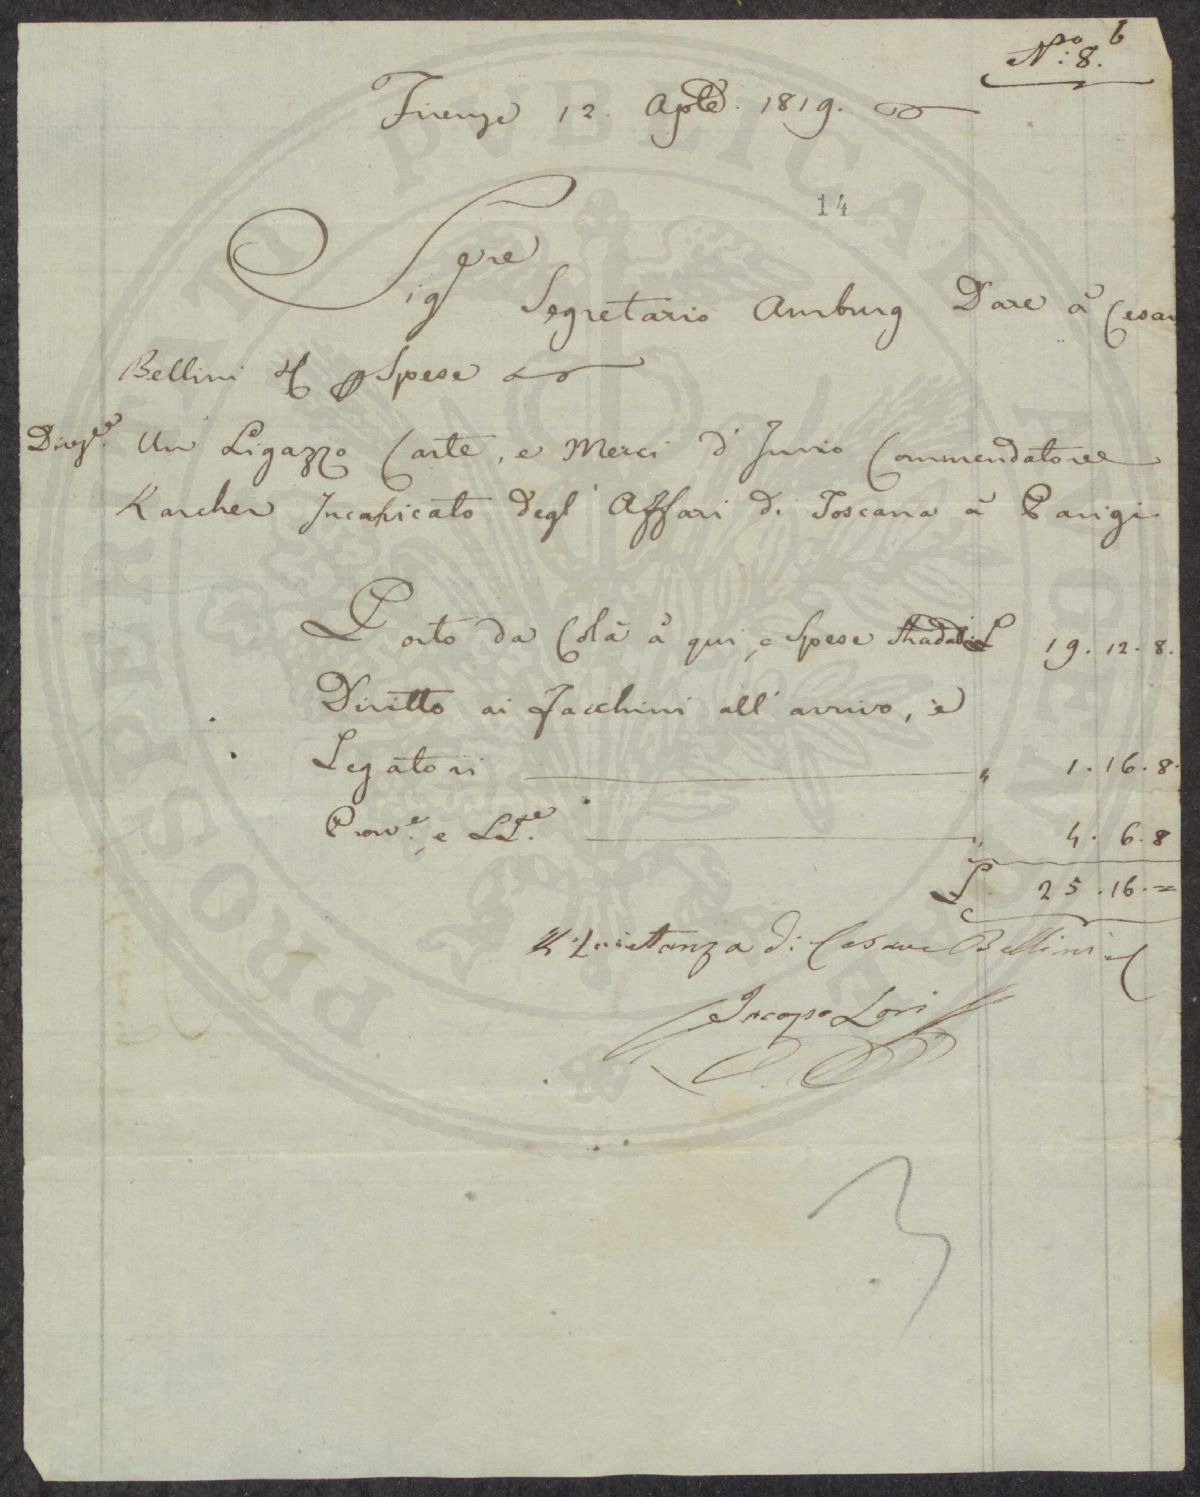 N.ro 8. b
Firenze 12. Aple. 1819.
14
Sigere Segretario Amburg Dare à Cesar
Bellini Spese
Un Ligazzo Carte, e Merci d'Invio Commendatore
Karcher Incaricato degl' Affari di Toscana à Parigi
Porto da Colà à qui, e Spese Stradali £ 19.12.8.
Diritto ai Facchini all' arrivo, e
Legatori " 1.16.8.
Provve., e " 4.6.8
£ 25.16.=
Quietanza di Cesare Bellini
Jacopo Lori
PROSPERITATI PVBLICAE